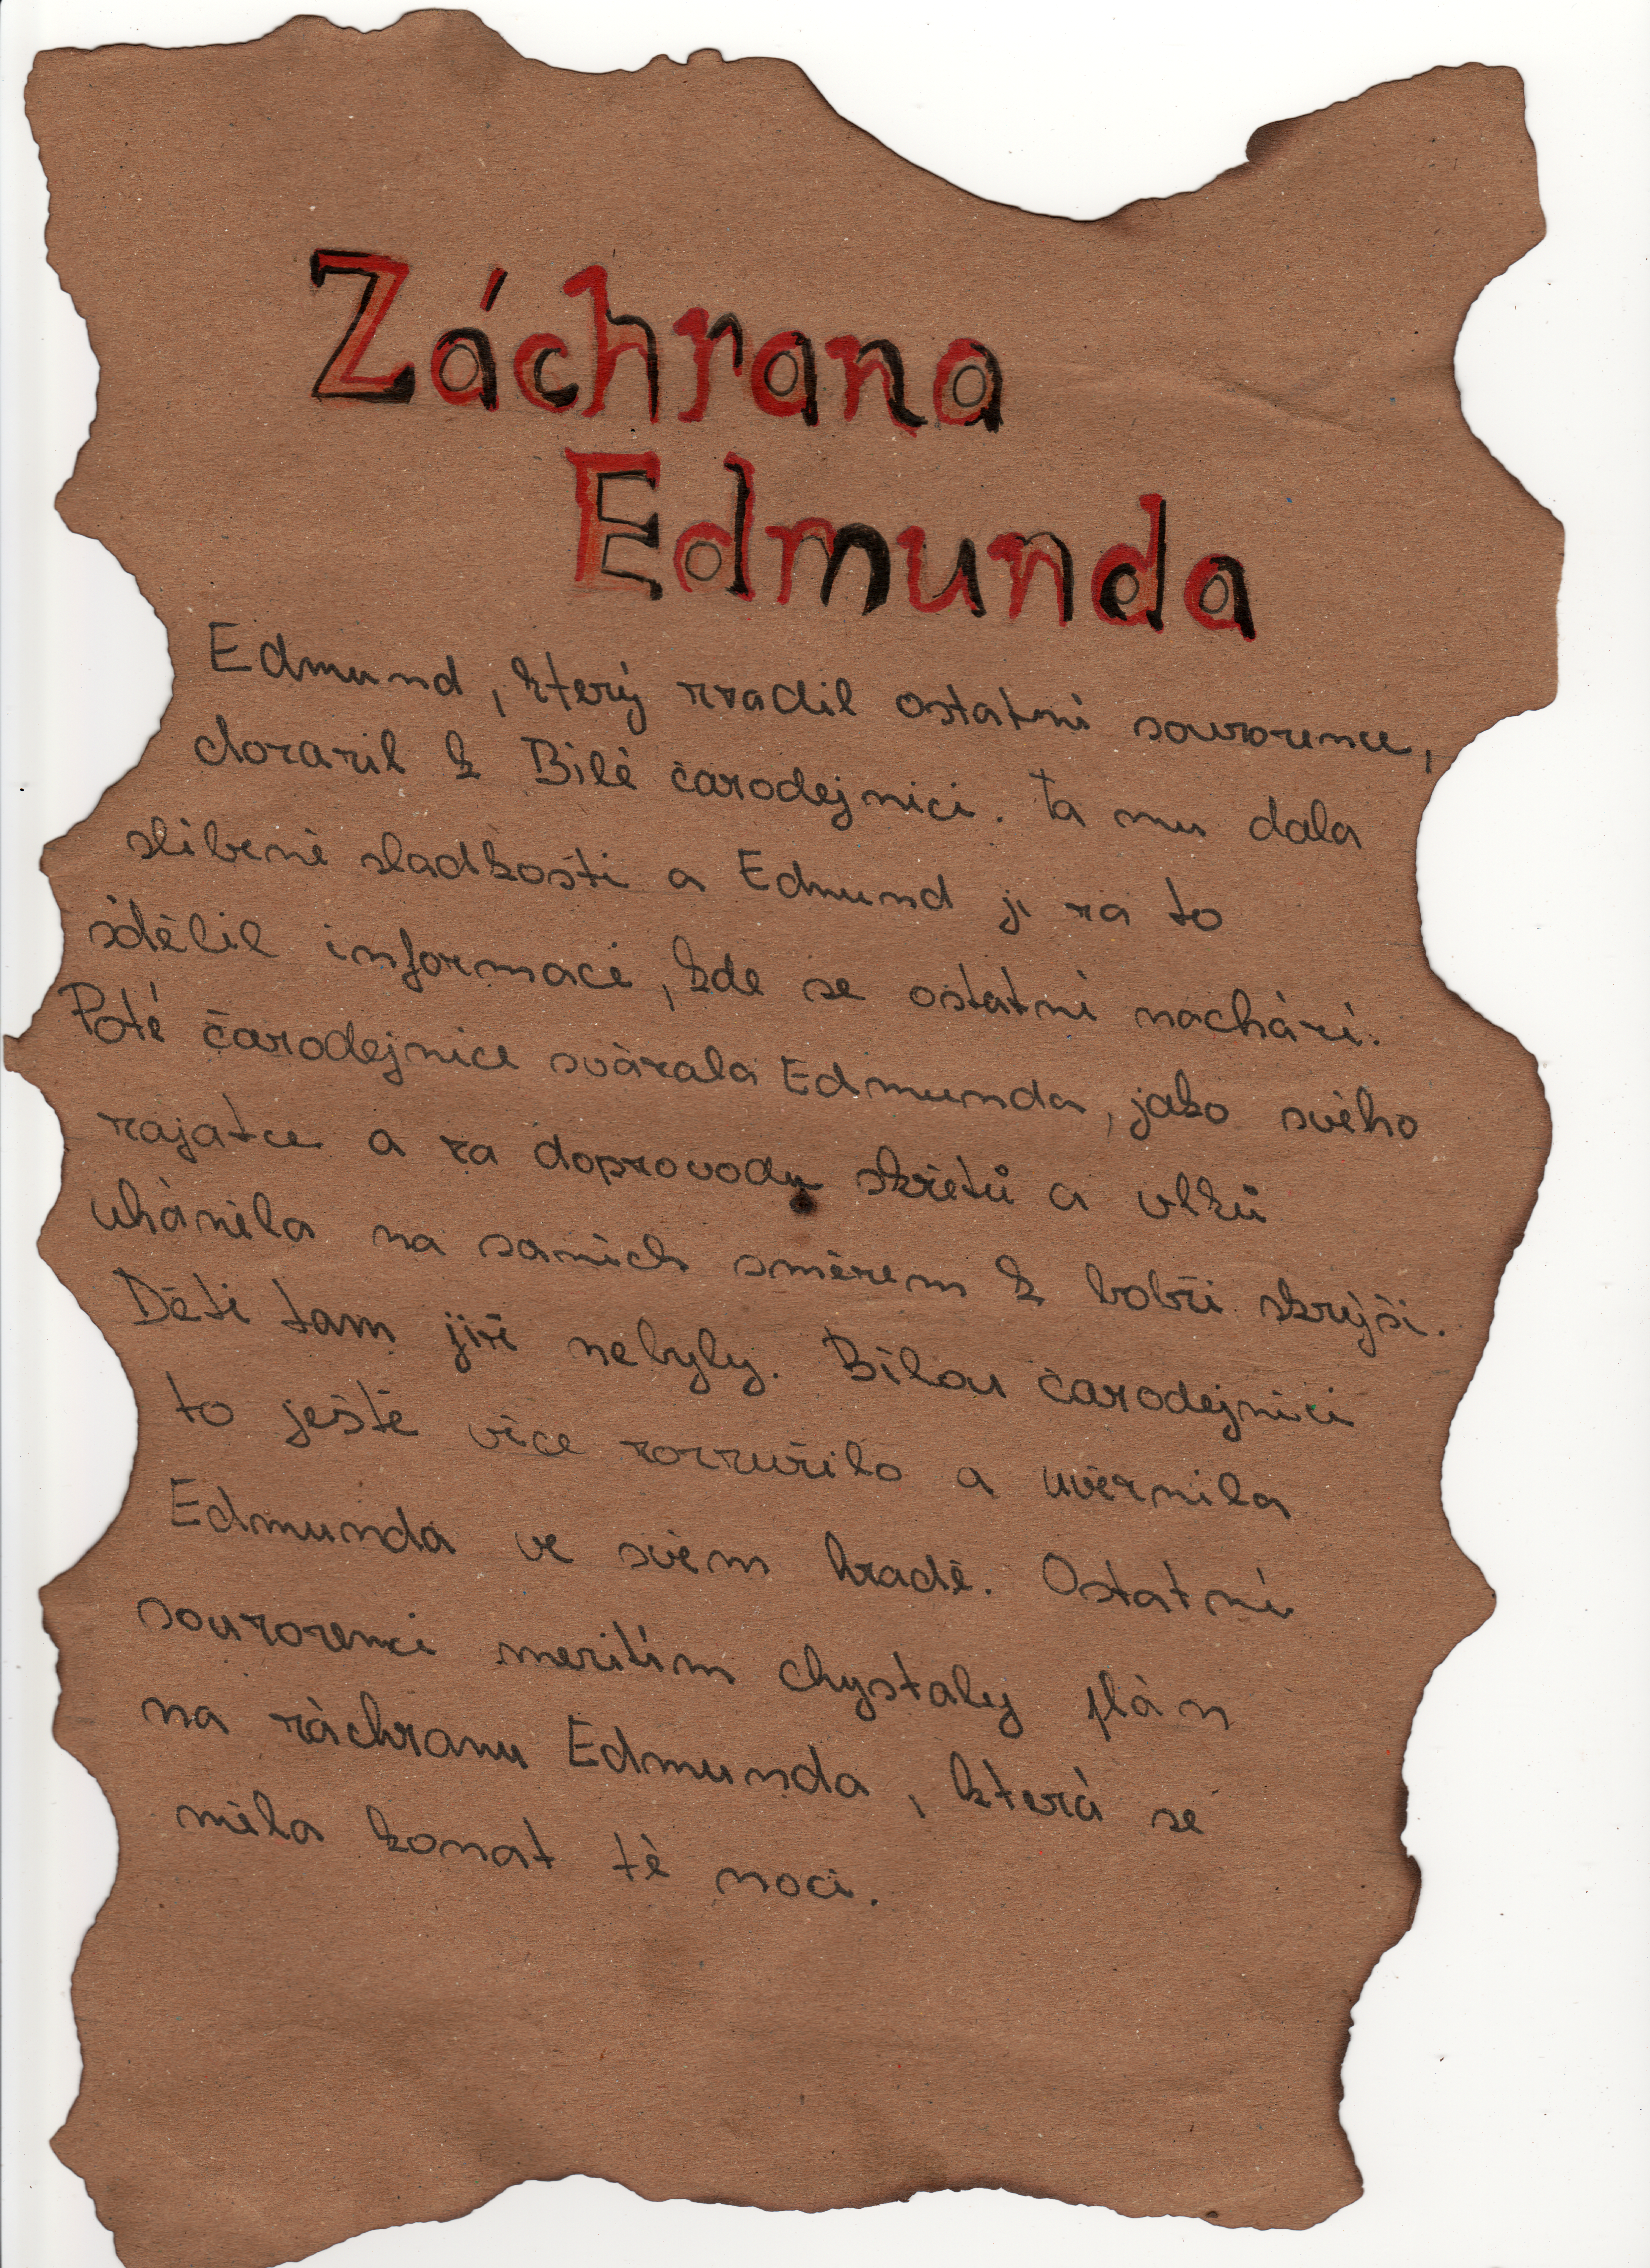 Záchrana
Edmunda
Edmund, který zradil ostatní sourozence,
dorazil k Bílé čarodejnici. Ta mu dala
slíbené sladkosti a Edmund jí za to
sdělil informaci, kde se ostatní nachází.
Poté čarodejnice svázala Edmunda, jako svého
zajatce a za doprovodu skřetů a vlků
uháněla na saních směrem k bobří skrýši.
Děti tam již nebyly. Bílou čarodejnici
to ještě více rozzuřilo a uvěznila
Edmunda ve svém hradě. Ostatní
sourozenci mezitím chystaly plán
na záchranu Edmunda, která se
měla konat té noci.